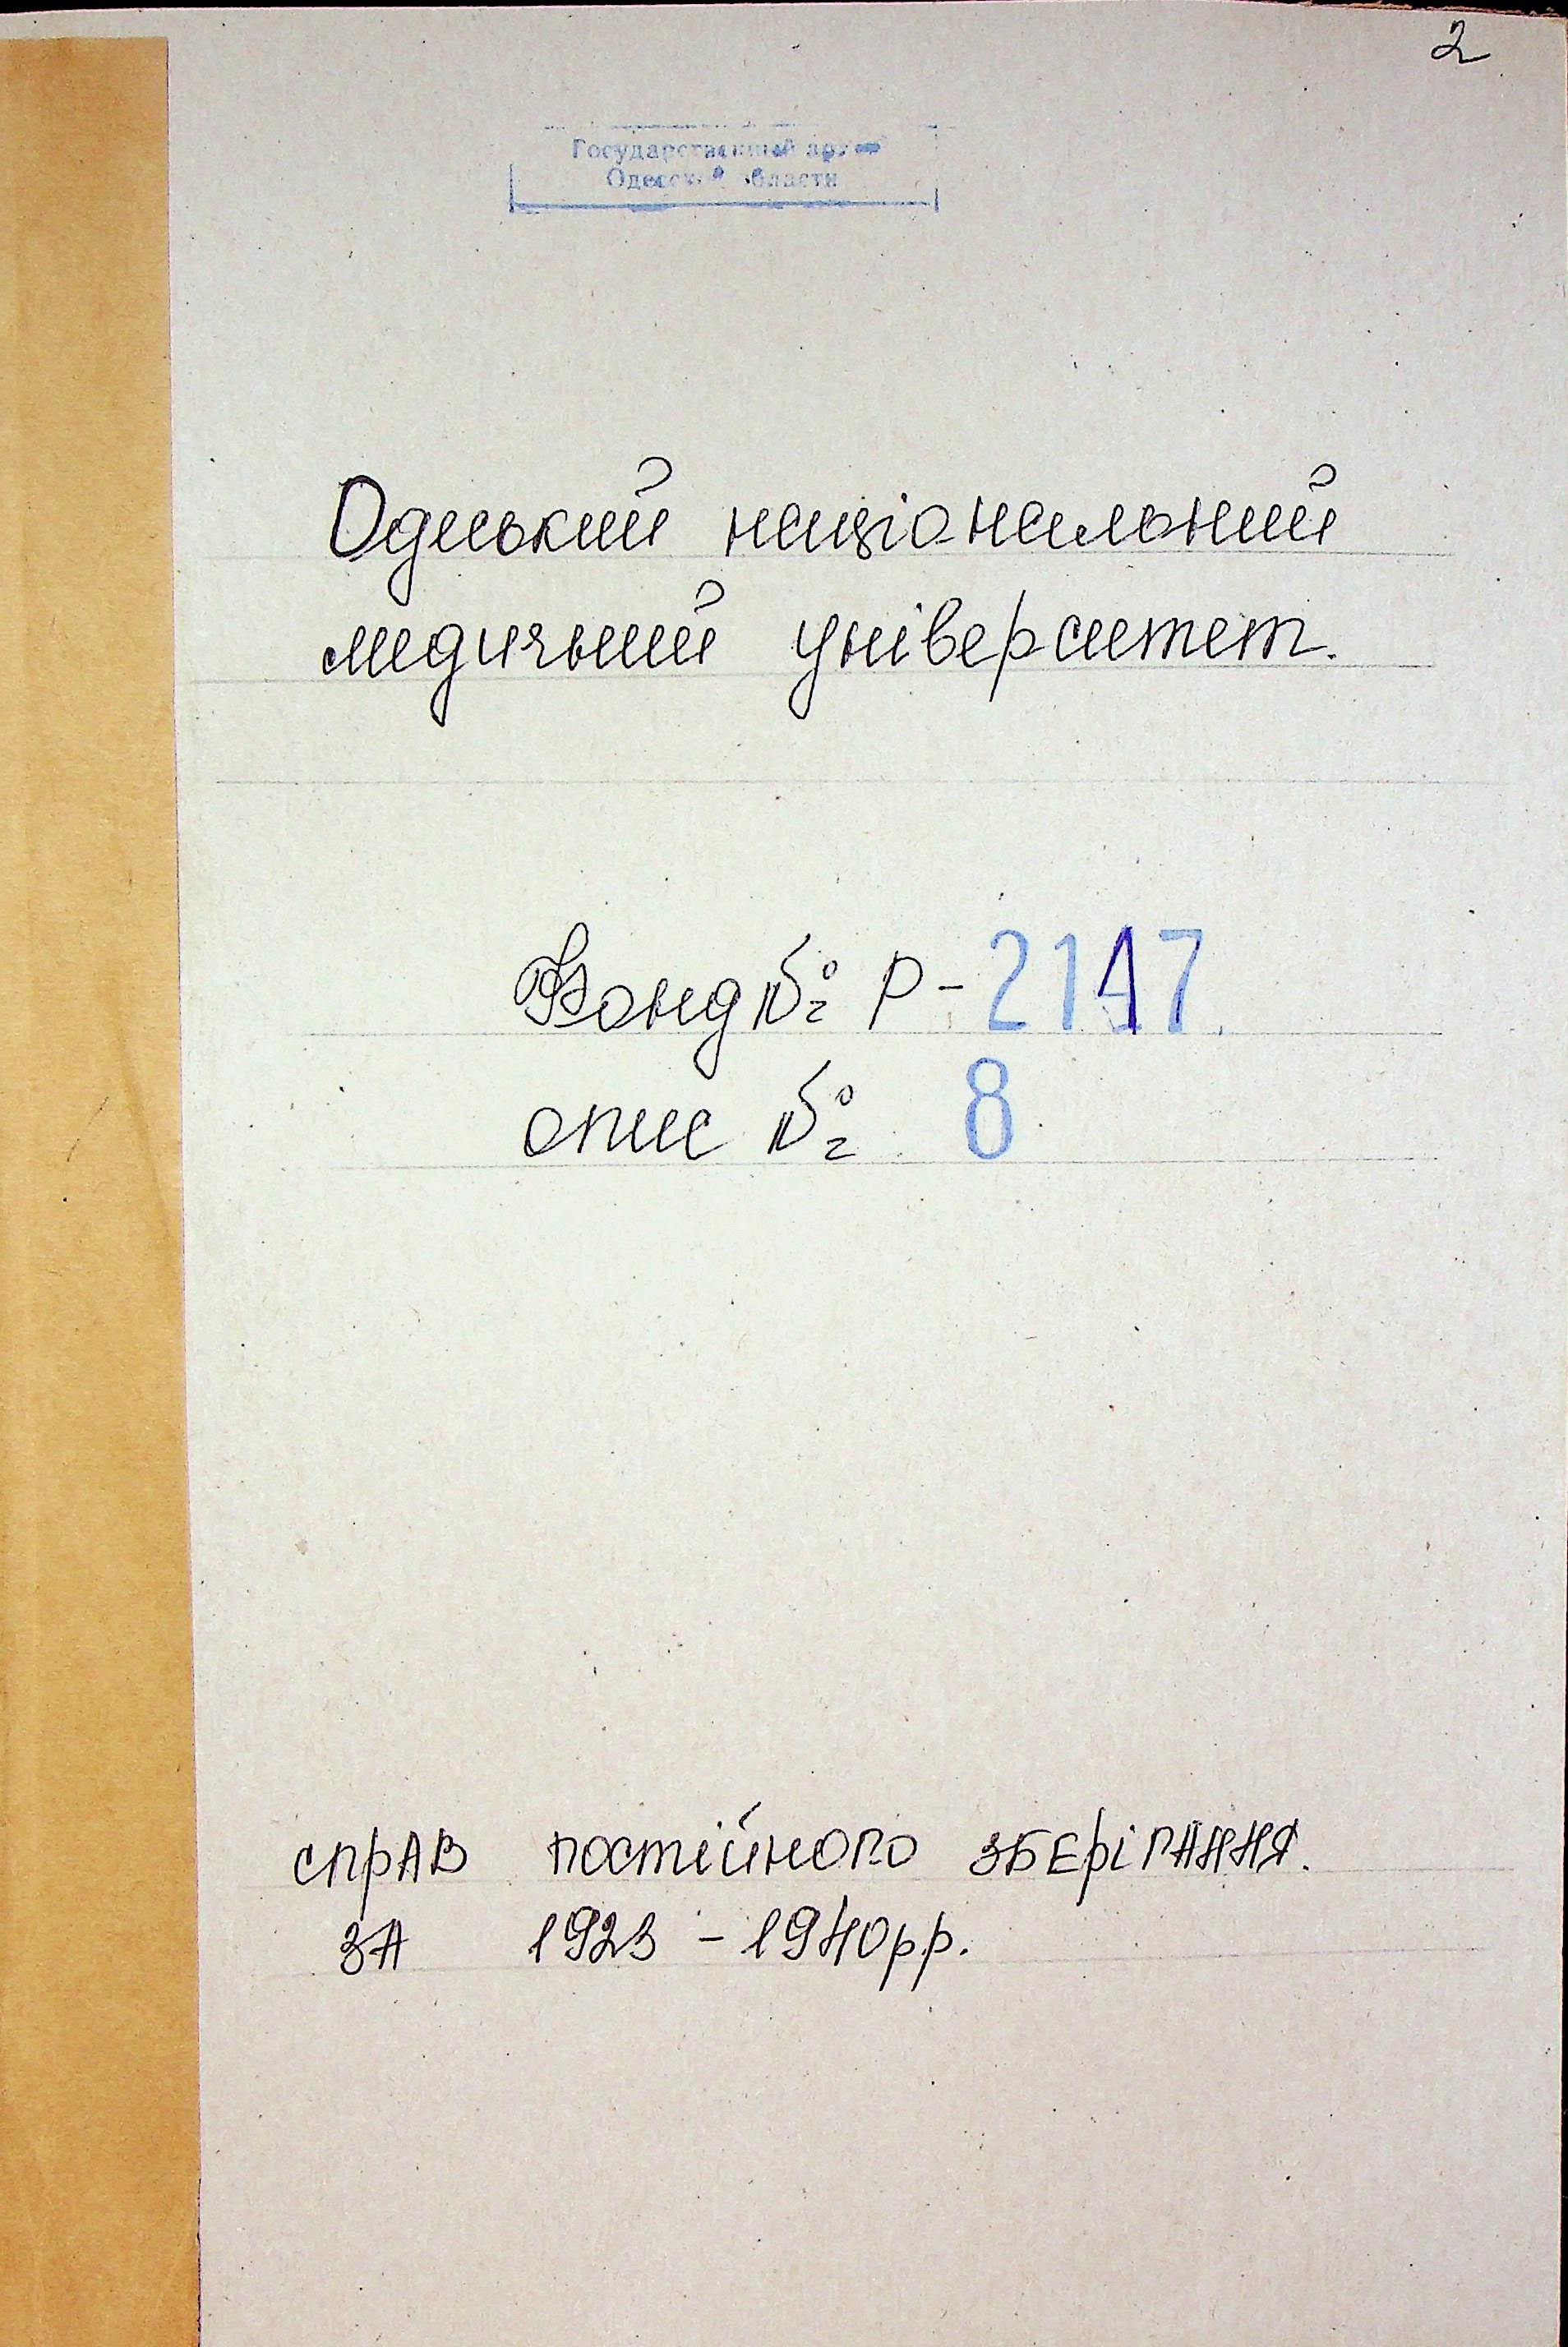 2
Государственный архив
Одесской области
Одеський національний
медичний університет.
Фонд № Р-2147
опис № 8
справ постійного зберігання.
за 1923 - 1940рр.